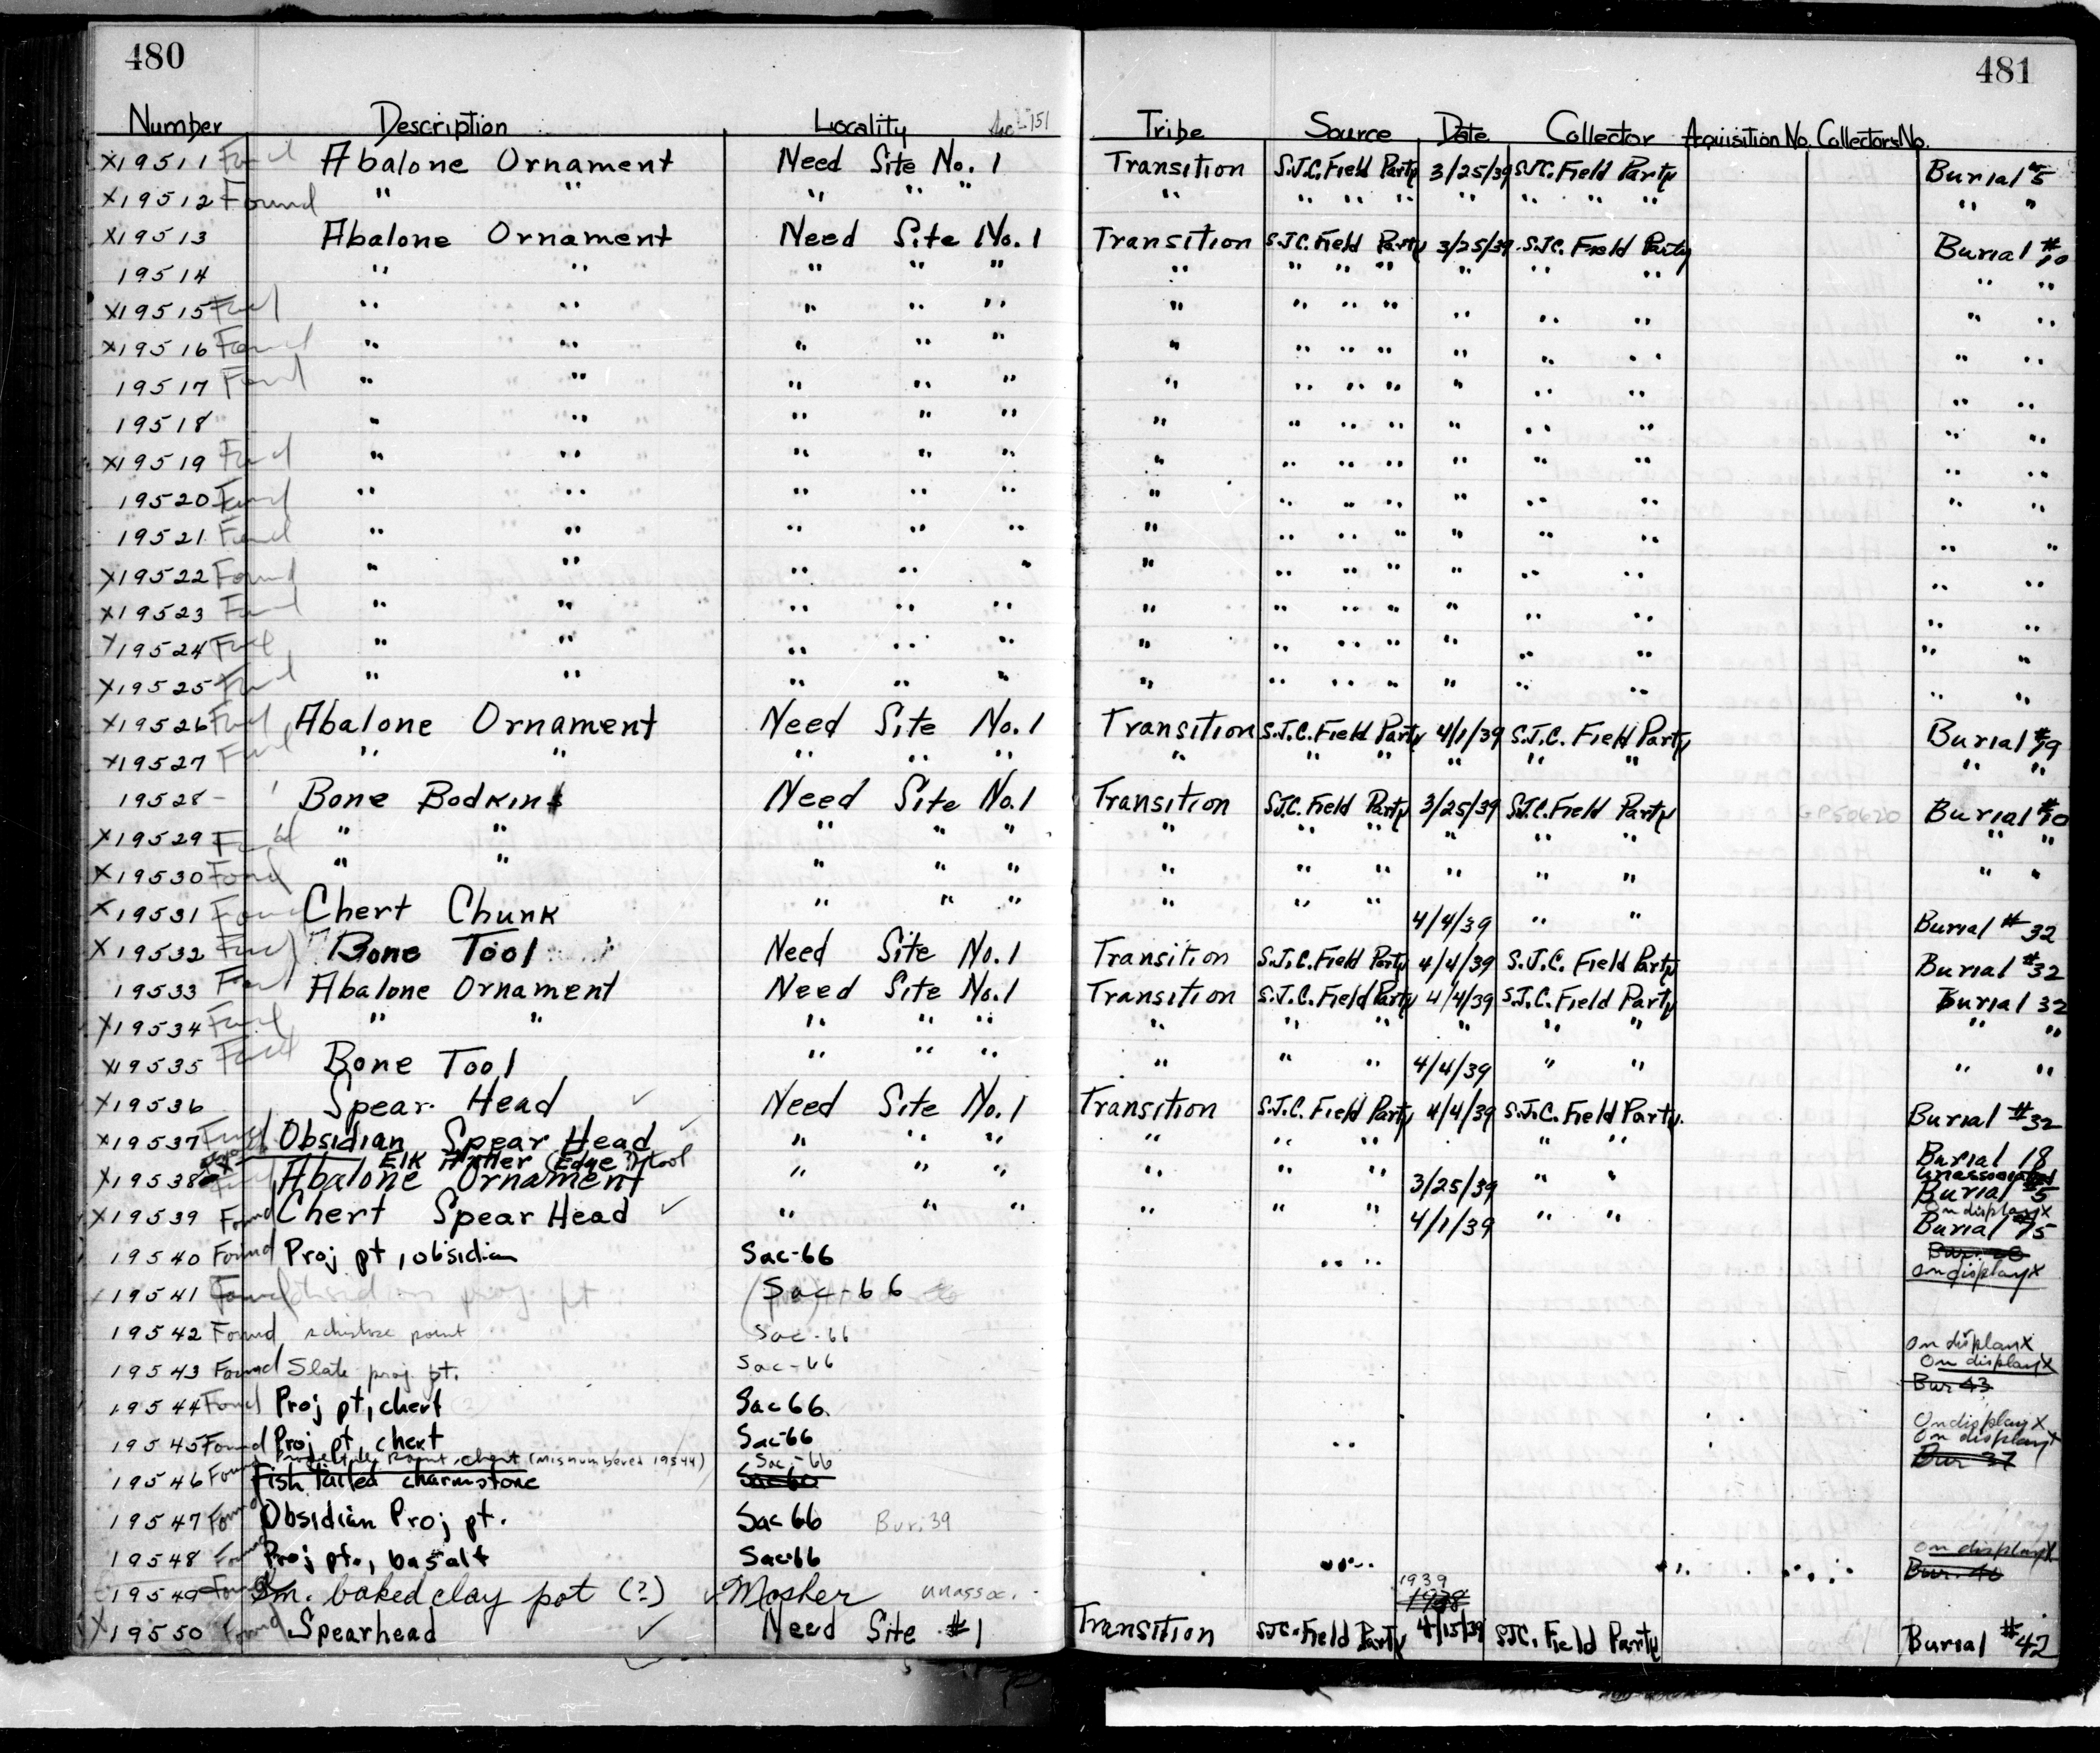 480 481
Number Description Locality Sac-151 Tribe Source Date Collector Acquisition No. Collectors No.
X19511 Found Abalone Ornament Need Site No. 1 Transition S.J.C. Field Party 3/25/39 SJC. Field Party Burial #5
X19512 Found " " " " " " " " " " " " " " "
X19513 Abalone Ornament Need Site No. 1 Transition S.J.C. Field Party 3/25/39 S.J.C. Field Party Burial #10
19514 " " " " " " " " " " " " " "
X19515 Found " " " " " " " " " " " " " "
X19516 Found " " " " " " " " " " " " " "
19517 Found " " " " " " " " " " " " " "
19518 " " " " " " " " " " " " " "
X19519 Found " " " " " " " " " " " " " "
19520 Found " " " " " " " " " " " " " "
19521 Found " " " " " " " " " " " " " "
X19522 Found " " " " " " " " " " " " " "
X19523 Found " " " " " " " " " " " " " "
X19524 Found " " " " " " " " " " " " " "
X19525 Found " " " " " " " " " " " " " "
X19526 Found Abalone Ornament Need Site No. 1 Transition S.J.C. Field Party 4/1/39 S.J.C. Field Party Burial #19
X19527 Found " " " " " " " " " " " " "
19528 - Bone Bodkins Need Site No. 1 Transition S.J.C. Field Party 3/25/39 S.J.C. Field Party Burial #10
X19529 Found " " " " " " " " " " " " "
X19530 Found " " " " " " " " " " " " "
X19531 Found Chert Chunk " " " " " " 4/4/39 " " Burial #32
X19532 Found Bone Tool Need Site No. 1 Transition S.J.C. Field Party 4/4/39 S.J.C. Field Party Burial #32
19533 Found Abalone Ornament Need Site No. 1 Transition S.J.C. Field Party 4/4/39 S.J.C. Field Party Burial 32
X19534 Found " " " " " " " " " " " " "
X19535 Found Bone Tool " " " " " " 4/4/39 " " " "
X19536 Spear Head ✓ Need Site No. 1 Transition S.J.C. Field Party 4/4/39 S.J.C. Field Party. Burial #32
X19537 Found Obsidian Spear Head ✓ " " " " " " " " Burial 18
Elk Antler (Edge ?) tool unassociated
X19538 Abalone Ornament " " " " " " 3/25/39 " " Burial #5
On display X
X19539 Found Chert Spear Head ✓ " " " " " " 4/1/39 " " Burial #15
19540 Found Proj pt, obsidian Sac-66 " "
On display X
19541 Found obsidian proj. pt Sac-66
19542 Found schistose point Sac-66 On display X
19543 Found Slate proj pt. Sac-66 On display X
Bur 43
19544 Found Proj pt, chert Sac 66. On display X
19545 Found Proj pt, chert Sac-66 " " On display X
Projectile Point, chert (misnumbered 19544) Sac-66 Bur 37
19546 Found Fish tailed charmstone Sac 66
19547 Found Obsidian Proj pt. Sac 66 Bur. 39
19548 Found Proj pt., basalt Sac-66 On display X
19549 Found Sm. baked clay pot (?) ✓ Mosher unassoc. 1939 1938
X19550 Found Spearhead ✓ Need Site #1 Transition SJC. Field Party 4/15/39 SJC. Field Party Burial #42